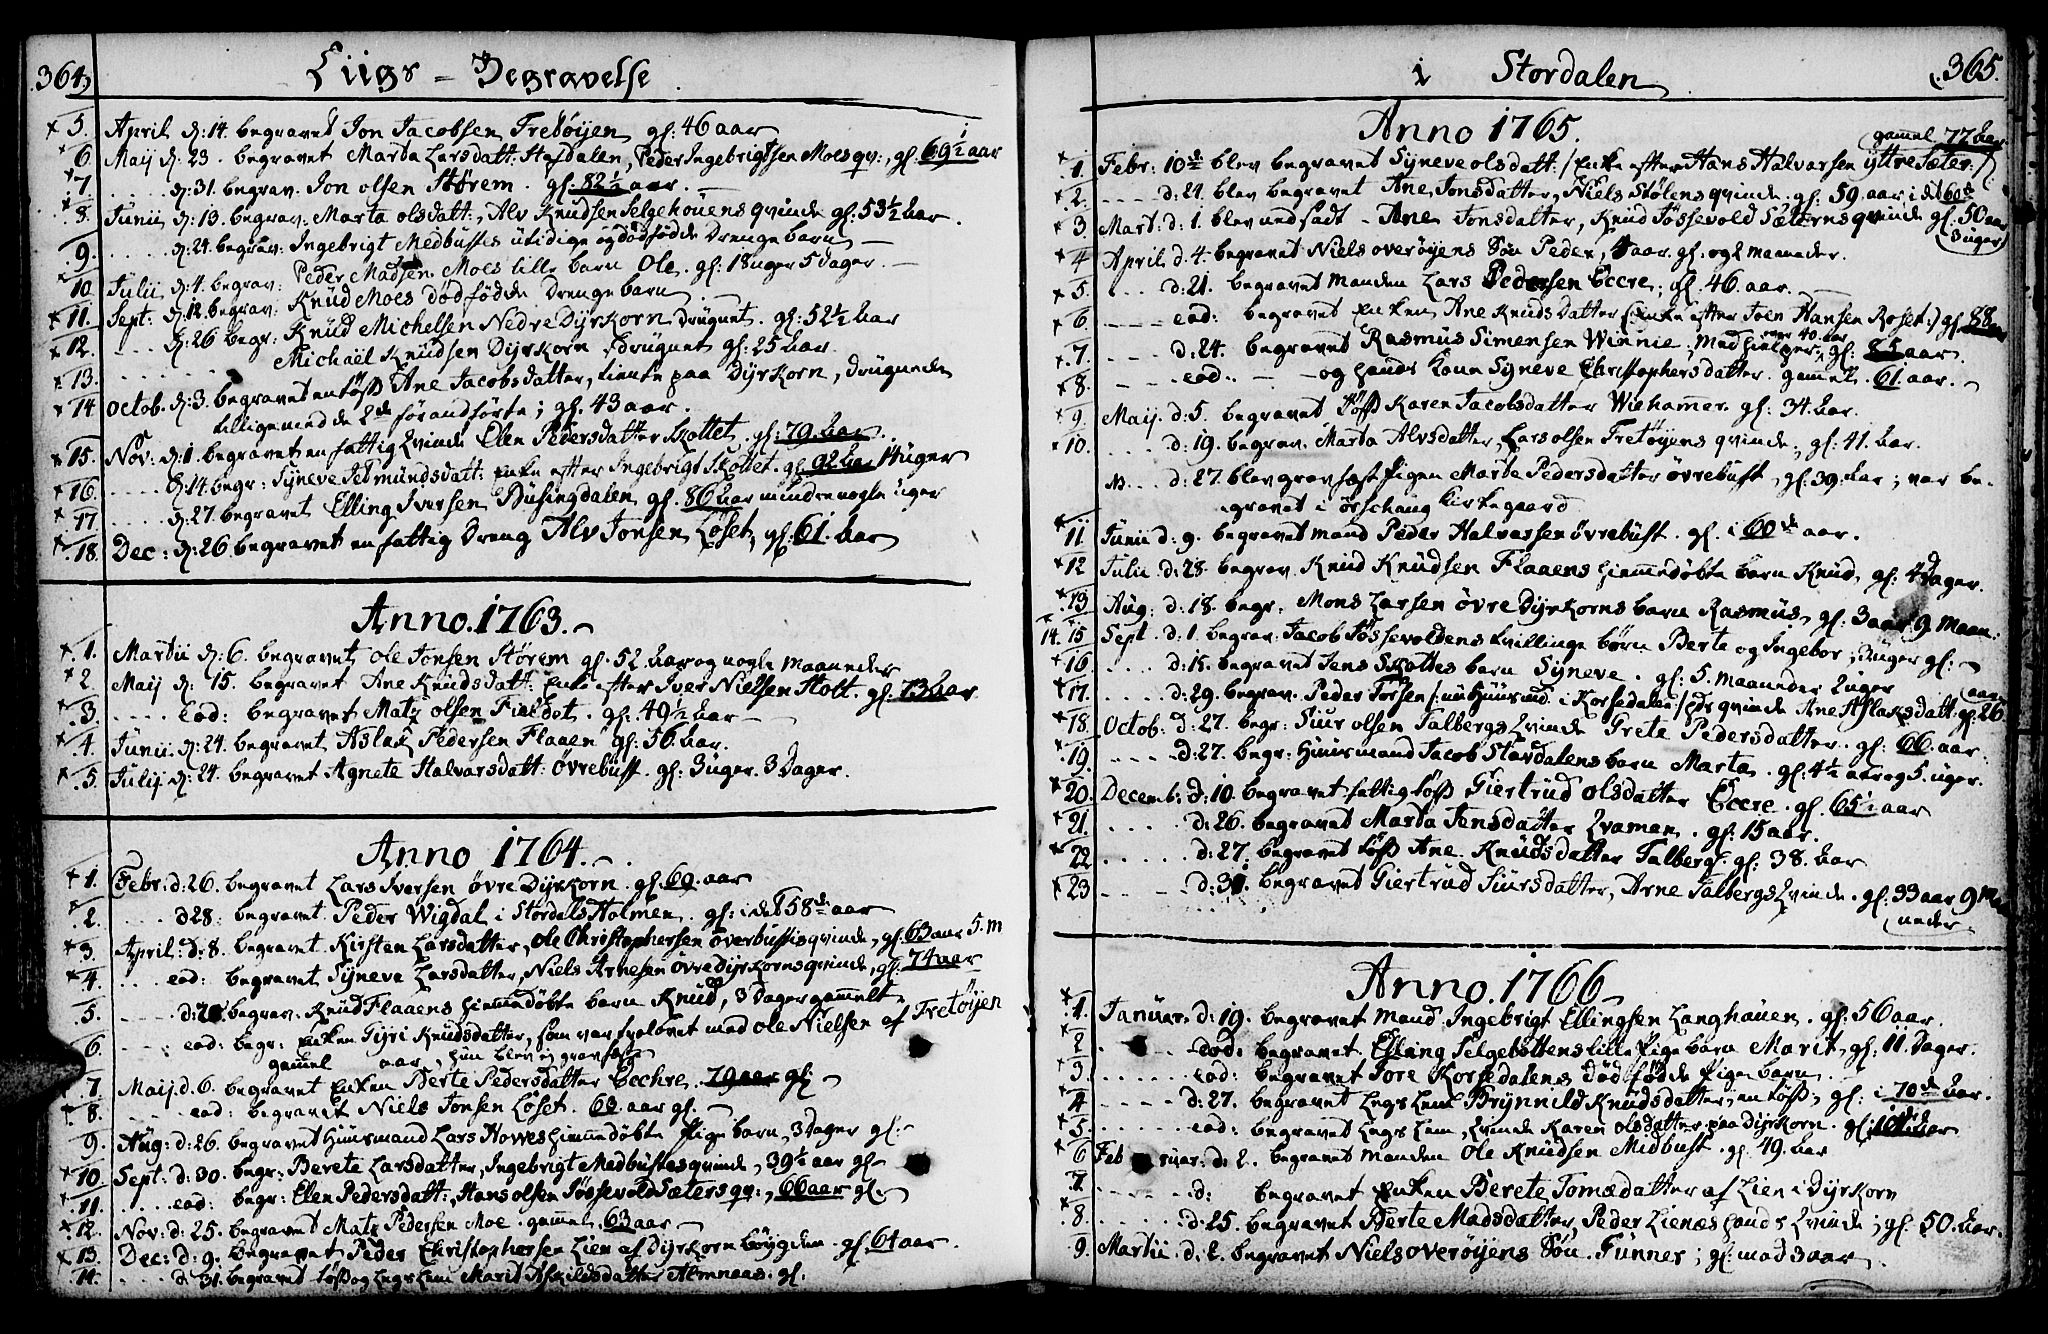 364.
Liigs - Begravelse.
5. April d: 14. begravet Jon Jacobsen Fretøyen gl: 46 aar
6. Maij d: 23. begravet Marta Larsdatt: Hofdalen, Peder Ingebrigtsen Moes qv:, gl: 69½ aar
7. .... d: 31. begrav. Jon Olsen Størem. gl: 82½ aar. —
8. Junii d: 13. begrav: Marta olsdatt:, Alv Knudsen Selgehouens qvinde gl: 53½ aar.
9. .... d: 24. begrav: Ingebrigt Medbustes utidige og dødfødde Drenge barn —
10. Julii d: 4. begrav: Peder Madsen Moes lille barn Ole. gl: 18 uger 5 Dager. —
11. Sept: d: 12. begrav: Knud Moes død fødde Drengebarn
12. ... d: 26 begr: Knud Michelsen Nedre Dyrkorn drugnet. gl: 52½ aar
13. ...... Michaël Knudsen Dyrkorn, drugnet gl: 25 aar.
14. Octob. d: 3. begravet en Løss Ane Jacobsdatter, tiente paa Dyrkorn, drugnede
tillige med de 2de foranførte; gl: 43 aar.
15. Nov: d: 1. begravet en fattig qvinde Elen Pedersdatter Skottet. gl: 79. aar.
16. .... d: 14. begr: Syneve Setmundsdatt: Enke efter Ingebrigt Skottet. gl: 92 aar 14 uger
17. .... d: 27. begravet Elling Iversen Busingdalen, gl: 86 aar mindre nogle uger
18. Dec: d: 26 begravet en fattig Dreng Alv Jonsen Løset, gl: 61. aar
Anno. 1763.
1. Martii d: 6. begravet Ole Jonsen Størem gl. 52 aar og nogle maaneder
2 Maij d: 15. begravet Ane Knudsdatt: Enke efter Iver Nielsen Holt. gl: 73 aar.
3. .... Eod: begravet Matz olsen Fieldet. gl: 49½ aar —
4. Junii. d: 24. begravet Aslak Pedersen Flaaen gl: 56. aar.
5 Julij d: 24. begravet Agnete Halvarsdatt: øvrebust. gl: 3 uger. 3 Dager.
Anno 1764.
1. Febr: d: 26. begravet Lars Iversen øvre Dyrkorn. gl: 69. aar
2. .... d 28: begravet Peder Wigdal i Stordals Holmen. gl: i det 58de aar
3. April: d: 8. begravet Kirsten Larsdatter, Ole Christophersen överbustes qvinde, gl: 63 aar 5. m
4. .... eod: begravet Syneve Larsdatter, Niels Arnesen øvre dyrkorns qvinde, gl: 74 aar
5. .... d: 28 begrav. Knud Flaaens hiemmedøbte barn Knud, 3 Dager gammelt
6. .... eod: begr: Enken Gyri Knudsdatter, som var forlovet med Ole Nielsen af Fretöyen
gammel aar, hun blev ej grav fæst
7. Maij d. 6. begravet Enken Berte Pedersdatter Ecchre. 79 aar gl: —
8. .... eod: begravet Niels Jonsen Løset. 60. aar gl. —
9. Aug: d: 26. begravet Huusmand Lars Howes hiemmedøbte Pige barn, 3 Dager gl: —
10 Sept: d: 30. begr: Berete Larsdatter, Ingebrigt Medbustes qvinde, 39½ aar gl —
11. .... eod: begr: Elen Pedersdatt:, Hans olsen Jössevold Sæters qv:, 66 aar gl: —
12. Nov: d: 25. begravet Matz Pedersen Moe. gammel. 63 aar —
13. Dec: d: 9. begravet Peder Christophersen Lien af Dyrkorn böygden. gl: 64 aar.
14. .... d 31. begravet Løss og Legs Lem Marit Askildsdatter Almenaas. gl:
i Stordalen
365.
Anno 1765.
gammel 77 aar
1. Febr: 10de blev begravet Syneve olsdatt: /: Enke efter Hans Halvarsen yttre Sæter :/
2. ... d: 24. blev begravet Ane Jonsdatter, Niels Stølens qvinde, gl: 59. aar i det 60de
3. Mart: d: 1. blev nedsadt - Ane Jonsdatter, Knud Jössevold Sæterns qvinde gl. 50 aar
3 uger
4 April d. 4. begravet Niels overøyens Søn Peder, aar. gl: og 2 maaneder.
5. .... d: 21. begravet manden Lars Pedersen Eccre; gl. 46. aar. —
6. .... eod: begravet Enken Ane Knudsdatter (Enke efter Joen Hansen Roset:) gl 88 aar
7. .... d: 24. begravet Rasmus Simensen Winnie; Medhielper over 40. aar, gl: 85 aar.
8. .... eod: — — og hands Kone Syneve Christophersdatter. gammel. 61. aar.
9. Maij. d: 5. begravet Löss Karen Jacobsdatter Wiehammer. gl: 34. aar.
10. .... d: 19. begrav. Marta Alvsdatter, Lars olsen Fretøyens qvinde, gl: 41. aar.
.... d: 27. blev gravfæst Pigen Marte Pedersdatter øvrebust, gl: 39. aar; var be-
gravet i ørschaug Kirkegaard
11. Junii d: 9. begravet mand Peder Halvarsen øvrebust. gl. i 60de aar.
12 Julii. d: 28. begrav. Knud Knudsen Flaaens hiemmedøbte barn Knud, gl: 4 Dager.
13 Aug: d: 18. begr. Mons Larsen øvre Dyrkorns barn Rasmus, gl: 3 aar 9 maan:
14. 15 Sept. d: 1. begrav: Jacob Jøssevoldens tvillinge børn Berte og Ingebor, 3 uger gl: —
16 .... d: 15. begravet Jens Skottes barn Syneve. gl: 5. maaneder 2 uger
17. .... d: 29. begrav. Peder Torsen /: nu Huusmd. i Korsedalen :/ ds qvinde Ane Aslaksdatt: gl: 26 aar
18. Octob: d: 27. begr: Siur olsen Talbergs qvinde Grete Pedersdatter. gl: 66. aar.
19. .... d: 27. begr. Huusmand Jacob Stavdalens barn Marta. gl: 4½ år og 5. uger.
20. Decemb: d: 10. begravet fattig Löss Giertrud olsdatter Eccre. gl. 65½ aar
21. .... d: 26. begravet Marta Jensdatter Kvamen. gl: 15 aar.
22 .... d: 27. begravet Løss Ane Knudsdatter Talberg. gl: 38. aar
23 .... d: 31. begravet Giertrud Siursdatter, Arne Talbergs qvinde. gl: 33 aar 9 Maa
neder
Anno. 1766
1. Januar. d: 19. begravet mand Ingebrigt Ellingsen Langhauen. gl: 56 aar.
2 .... Eod: begravet. Elling Selgebottens lille Pige barn Marit, gl: 11. Dager.
3. .... eod: begravet Tore Korsedalens Død fødde Pige barn.
4 .... d: 27. begravet Legs Lem Brynnild Knudsdatter, en Løss, gl: i 70de aar.
5. .... eod: begravet Legs Lem, qvinde Karen olsdatter paa Dyrkorn. gl: aar
6 Februar: d: 2. begravet manden Ole Knudsen Midbust. gl. 49. aar
7. .... d: begravet Enken Berete Tomasdatter af Lien i Dyrkorn
8. .... d: 25. begravet Berte Madsdatter, Peder Lienæs hands qvinde; gl: 50. aar.
9. Martii d: 2. begravet Niels overøyens Søn. Gunner; gl: mod 3 aar